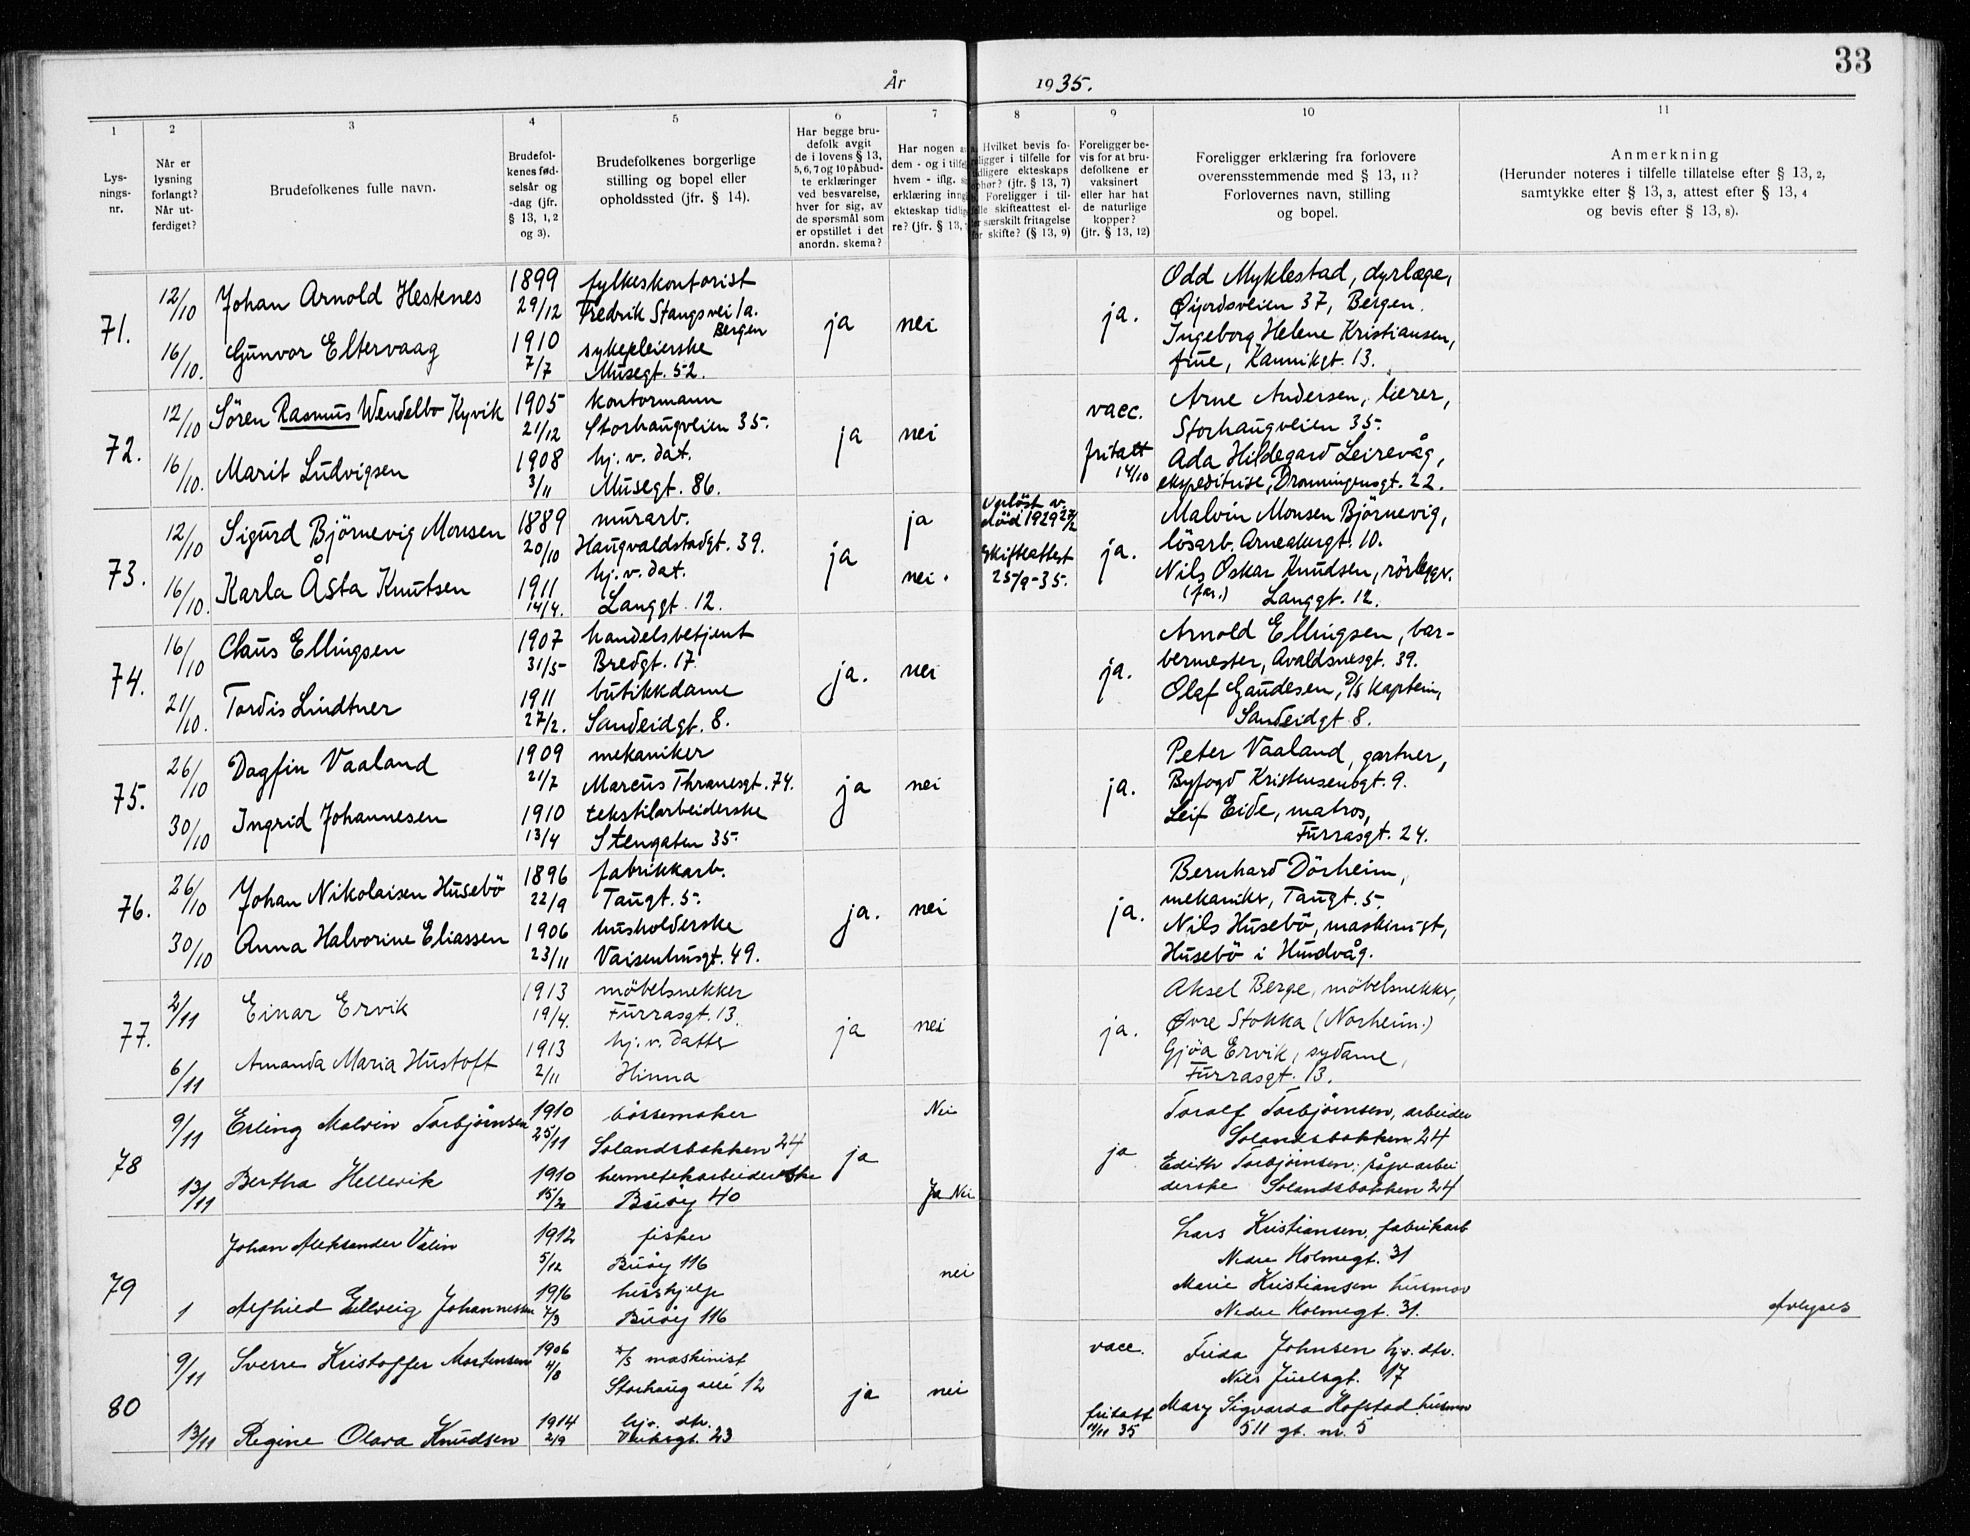 33
År 1935.
1 2 3 4 5 6 7 8 9 10 11
Lys-
nings-
nr.
Når er
lysning
forlangt?
Når ut-
ferdiget?
Brudefolkenes fulle navn.
Brudefol-
kenes fød-
selsår og
-dag (jfr.
§ 13, 1, 2
og 3).
Brudefolkenes borgerlige
stilling og bopel eller
opholdssted (jfr. § 14).
Har begge bru-
defolk avgit
de i lovens § 13,
5, 6, 7 og 10 påbud-
te erklæringer
ved besvarelse,
hver for sig, av
de spørsmål som
er opstillet i det
anordn. skema?
Har nogen
dem - og i
hvem - iflg.
erklæring
ekteskap
re? (jfr. § 13,
Hvilket bevis fo-
religger i tilfelle for
tidligere ekteskaps
ophør? (jfr. § 13, 7)
Foreligger i til-
felle skifteattest el-
ler særskilt fritagelse
for skifte? (§ 13, 9)
Foreligger be-
vis for at bru-
defolkene er
vaksinert
eller har hat
de naturlige
kopper?
(jfr. § 13, 12)
Foreligger erklæring fra forlovere
overensstemmende med § 13, 11?
Forlovernes navn, stilling
og bopel.
Anmerkning
(Herunder noteres i tilfelle tillatelse efter § 13, 2,
samtykke efter § 13, 3, attest efter § 13, 4
og bevis efter § 13, 8).
71.
12/10
16/10.
Johan Arnold Hestenes
Gunvor Eltervaag
1899
29/12
1910
7/7
fylkeskontorist
Fredrik Stangsvei 1a.
Bergen
sykepleierske
Musegt. 52.
ja
nei
ja.
Odd Myklestad, dyrlæge,
Øijordsveien 37, Bergen.
Ingeborg Helene Kristiansen,
frue, Kannikgt. 13.
72.
12/10
16/10.
Sören Rasmus Wendelbo Kyvik
Marit Ludvigsen
1905
21/12
1908
3/11
kontormann
Storhaugveien 35.
hj. v. dat.
Musegt. 86.
ja
nei
vacc.
fritatt
14/10
Arne Andersen, lærer,
Storhaugveien 35.
Ada Hildegard Leirevåg,
ekspeditrise, Dronningensgt. 22.
73.
12/10
16/10.
Sigurd Björnevig Monsen
Karla Åsta Knutsen
1889
20/10
1911
14/4.
murarb.
Haugvaldstadgt. 39.
hj. v. dat.
Langgt. 12.
ja
ja
nei.
opløst v.
død 1929 27/2
Skifteattest
25/9-35.
ja.
Malvin Monsen Björnevig,
lösarb. Arneagergt. 10.
Nils Oskar Knudsen, rörlegger.
(far.) Langgt. 12.
74.
16/10
21/10.
Claus Ellingsen
Tordis Lindtner
1907
31/5
1911
27/2.
handelsbetjent
Bredgt. 17.
butikkdame
Sandeidgt. 8.
ja.
nei
ja.
Arnold Ellingsen, bar-
bermester, Avaldsnesgt. 39.
Olaf Gaudesen, D/S kaptein,
Sandeidgt 8.
75.
26/10
30/10
Dagfin Vaaland
Ingrid Johannesen
1909
21/7
1910
13/4
mekaniker
Marcus Thranesgt. 74.
tekstilarbeiderske
Stengaten 35.
ja
nei
ja.
Peter Vaaland, gartner,
Byfogd Kristensensgt. 9.
Leif Eide, matros,
Furrasgt. 24.
76.
26/10
30/10
Johan Nikolaisen Husebö
Anna Halvorine Eliassen
1896
22/9
1906
23/11
fabrikkarb.
Taugt. 5.
husholderske
Vaisenhusgt. 49.
ja.
nei
ja.
Bernhard Dörheim,
mekaniker, Taugt. 5.
Nils Husebö, maskinist,
Husebö i Hundvåg.
77.
2/11
6/11
Einar Ervik
Amanda Maria Hustoft
1913
19/4.
1913
2/11
möbelsnekker
Furrasgt. 13.
hj. v. datter
Hinna
ja
nei
ja.
Aksel Berge, möbelsnekker,
Øvre Stokka (Norheim.)
Gjöa Ervik, sydame,
Furrasgt. 13.
78
9/11
13/11
Erling Malvin Torbjørnsen
Bertha Hellevik
1910
25/11
1910
15/2
bøssemaker
Solandsbakken 24
hermetekarbeiderske
Buøy 40
ja
Nei
Ja Nei
ja
Toralf Torbjørnsen, arbeider
Solandsbakken 24
Edith Torbjørnsen, arbei
derske Solandsbakken 24
79
1
Johan Aleksander Valin
Alfhild Ellveig Johannessen
1912
5/12
1916
7/3
fisker
Buøy 116
hushjelp
Buøy 116
nei
Lars Kristiansen, fabrikarb
Nedre Holmegt. 31
Marie Kristiansen husmor
Nedre Holmegt. 31.
Avlyses
80
9/11
13/11
Sverre Kristoffer Mortensen
Regine Olava Knudsen
1906
4/8
1914
2/9
maskinist
Storhaug allé 12
hjv. dtr.
Verksgt. 23
ja
nei
vacc.
fritatt
11/11 35
Frida Johnsen hjv. dtr.
Nils Juelsgt. 17
Mary Sigvarda Hofstad husmor
511 gt. nr. 5